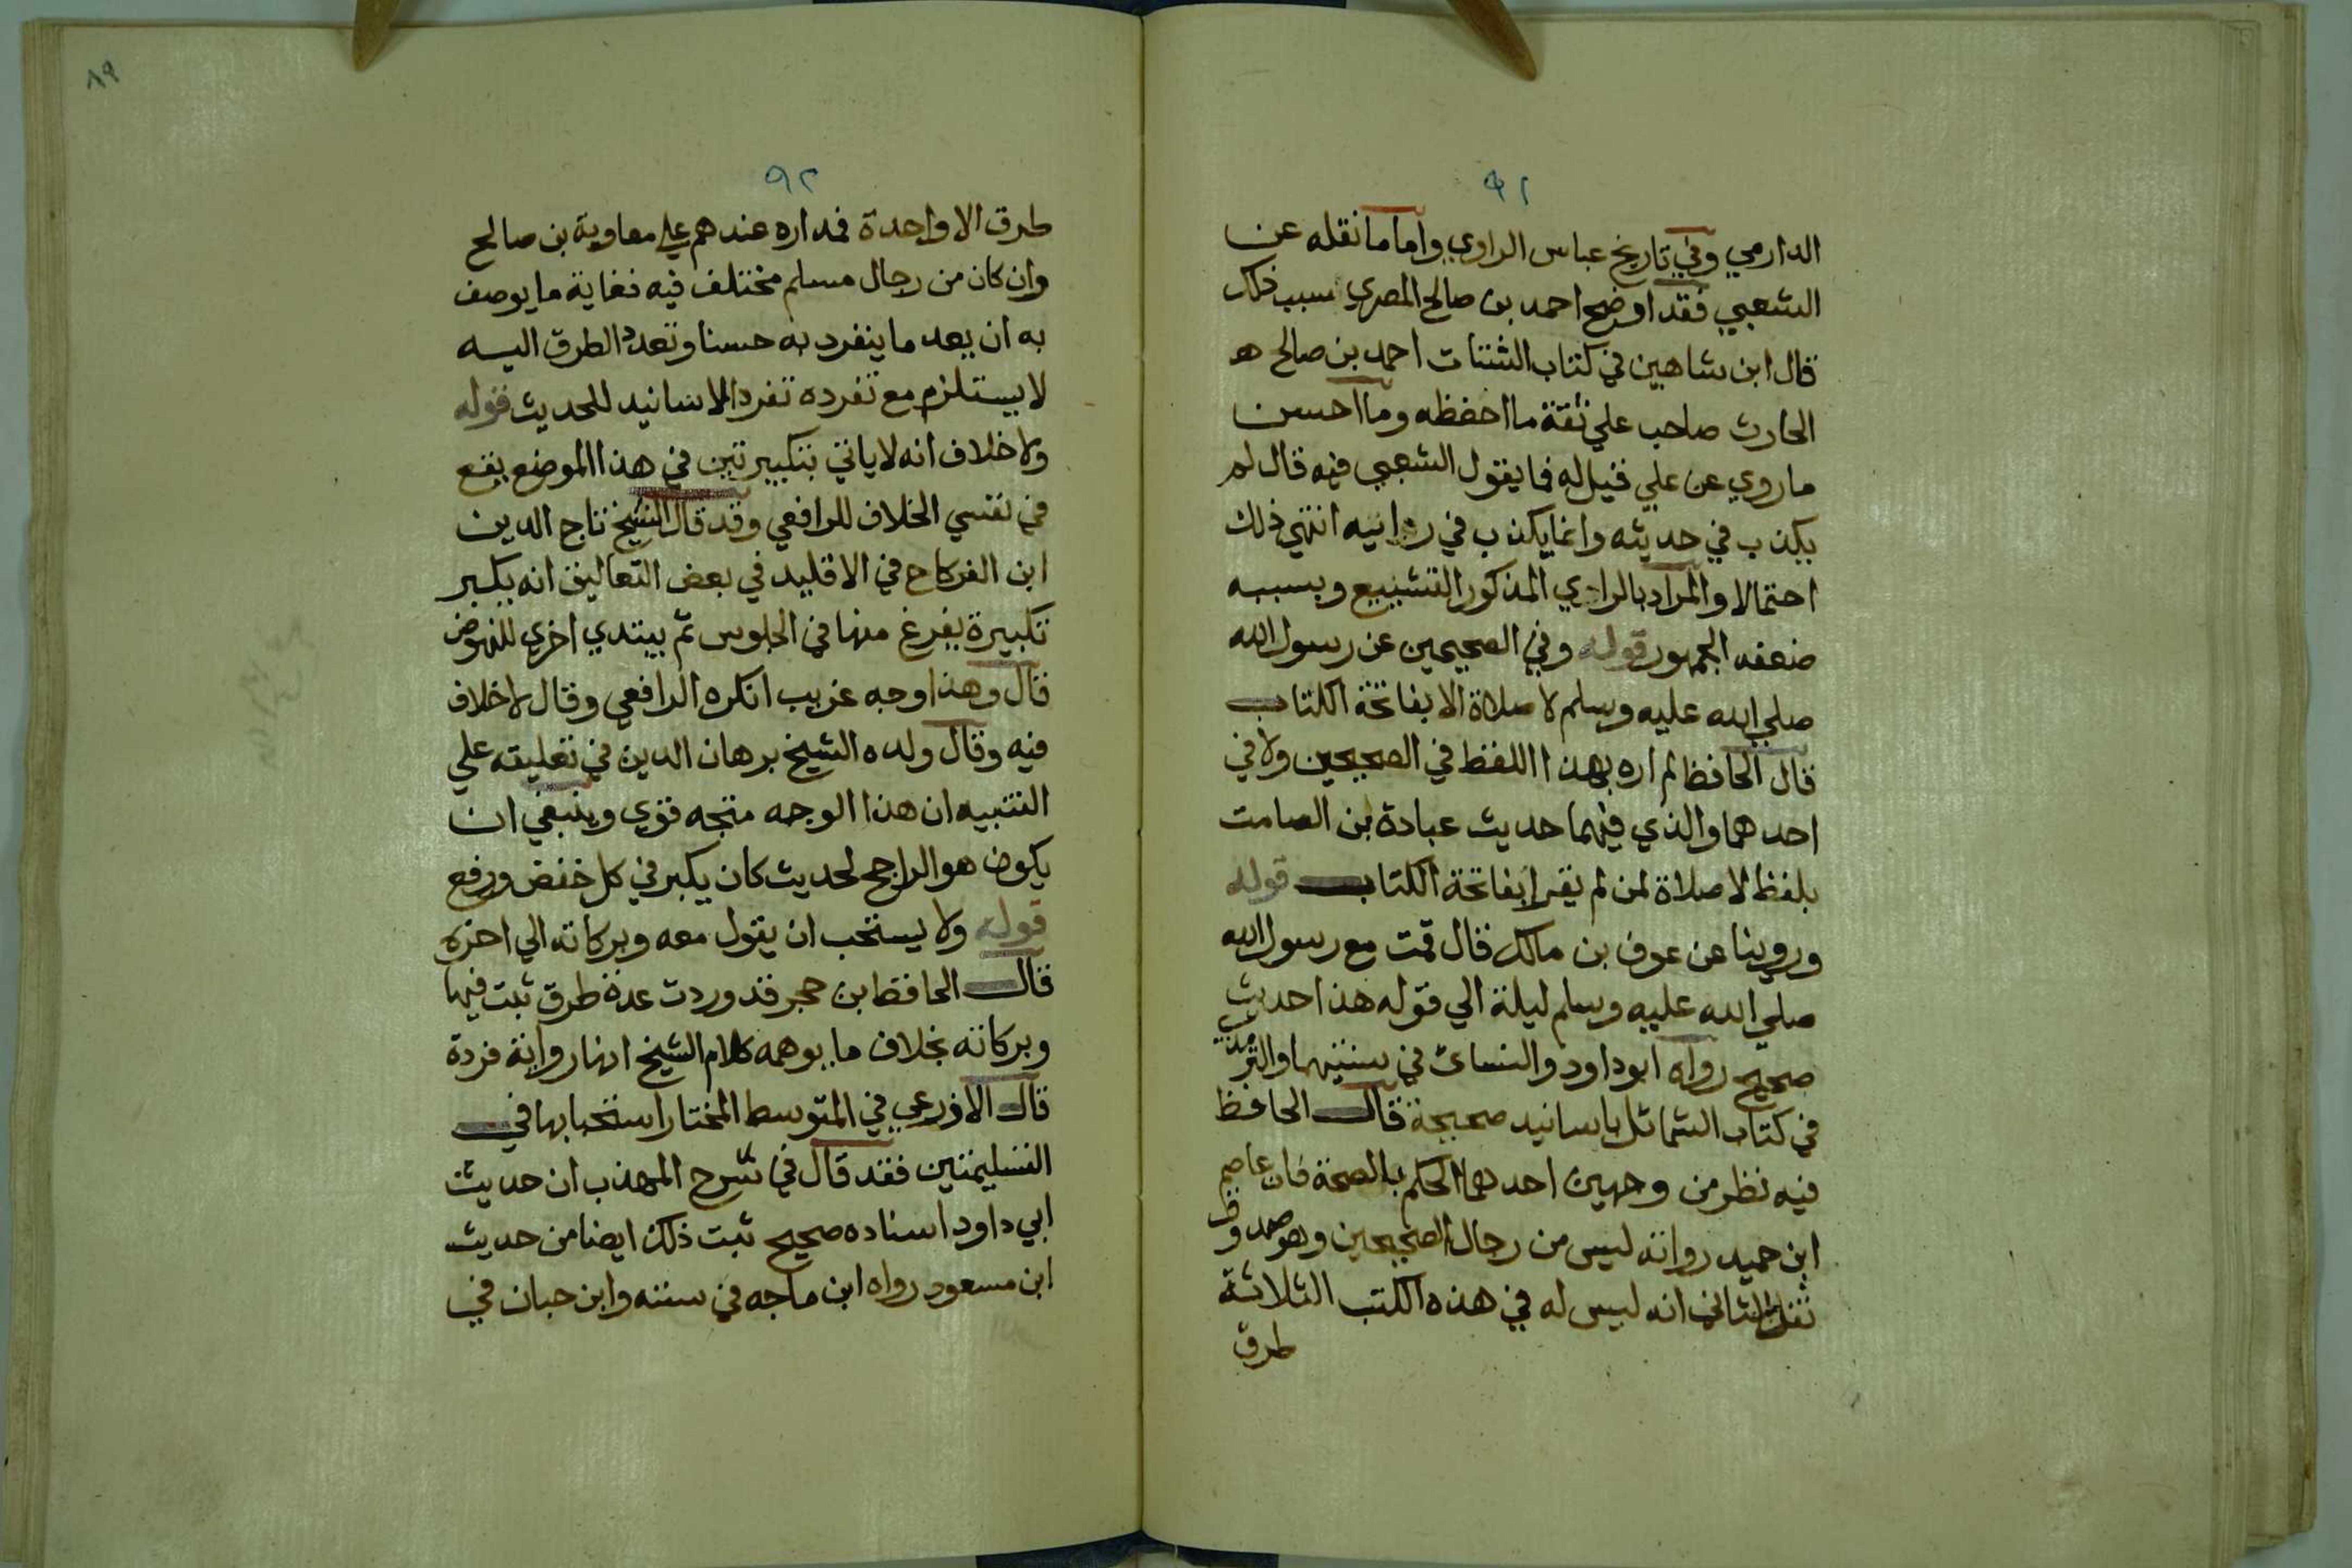 ٩١
الدارمي وفي تاريخ عباس الراوي واما ما نقله عن
الشعبي فقد اوضح احمد بن صالح المصري سبب ذلك
قال ابن شاهين في كتاب الثقات احمد بن صالح هو
الحارث صاحب علي ثقة ما احفظه وما احسن
ما روي عن علي قيل له فما يقول الشعبي فيه قال لم
يكذب في حديثه وانما يكذب في رايه انتهي ذلك
احتمالا والمراد بالراي المذكور التشيع وبسببه
ضعفه الجمهور قوله وفي الصحيحين عن رسول الله
صلي الله عليه وسلم لا صلاة الا بفاتحة الكتاب
قال الحافظ لم اره بهذا اللفظ في الصحيحين ولا في
احدهما والذي فيهما حديث عبادة بن الصامت
بلفظ لا صلاة لمن لم يقرا بفاتحة الكتاب قوله
وروينا عن عوف بن مالك قال قمت مع رسول الله
صلي الله عليه وسلم ليلة الي قوله هذا حديث
صحيح رواه ابو داود والنسائ في سننهما والترمذي
في كتاب الشمائل باسانيد صحيحة قال الحافظ
فيه نظر من وجهين احدهما الحكم بالصحة فان عاصم
ابن حميد رواته ليس من رجال الصحيحين وهو صدوق
الثاني انه ليس له في هذه الكتب الثلاثة
طرق
٨٩
٩٢
طرق الا واحدة فمداره عندهم علي معاوية بن صالح
وان كان من رجال مسلم مختلف فيه فغاية ما يوصف
به ان يعد ما ينفرد به حسنا وتعدد الطرق اليه
لا يستلزم مع تفرده تفرد الاسانيد للحديث قوله
ولا خلاف انه لا ياتي بتكبيرتين في هذا الموضع يقع
في نفسي الخلاف للرافعي وقد قال الشيخ تاج الدين
ابن الفركاح في الاقليد في بعض التعاليق انه يكبر
تكبيرة يفرغ منها في الجلوس ثم يبتدي اخري للنهوض
قال وهذا وجه غريب انكره الرافعي وقال لا خلاف
فيه وقال ولده الشيخ برهان الدين في تعليقه علي
التنبيه ان هذا الوجه متجه قوي وينبغي ان
يكون هو الراجح لحديث كان يكبر في كل خفض ورفع
قوله ولا يستحب ان يقول معه وبركاته الي اخره
قال الحافظ ابن حجر قد وردت عدة طرق ثبت فيها
وبركاته بخلاف ما يوهمه كلام الشيخ انها رواية فردة
قال الاذرعي في المتوسط المختار استحبابها في
التسليمتين فقد قال في شرح المهذب ان حديث
ابي داود اسناده صحيح ثبت ذلك ايضا من حديث
ابن مسعود رواه ابن ماجه في سننه وابن حبان في